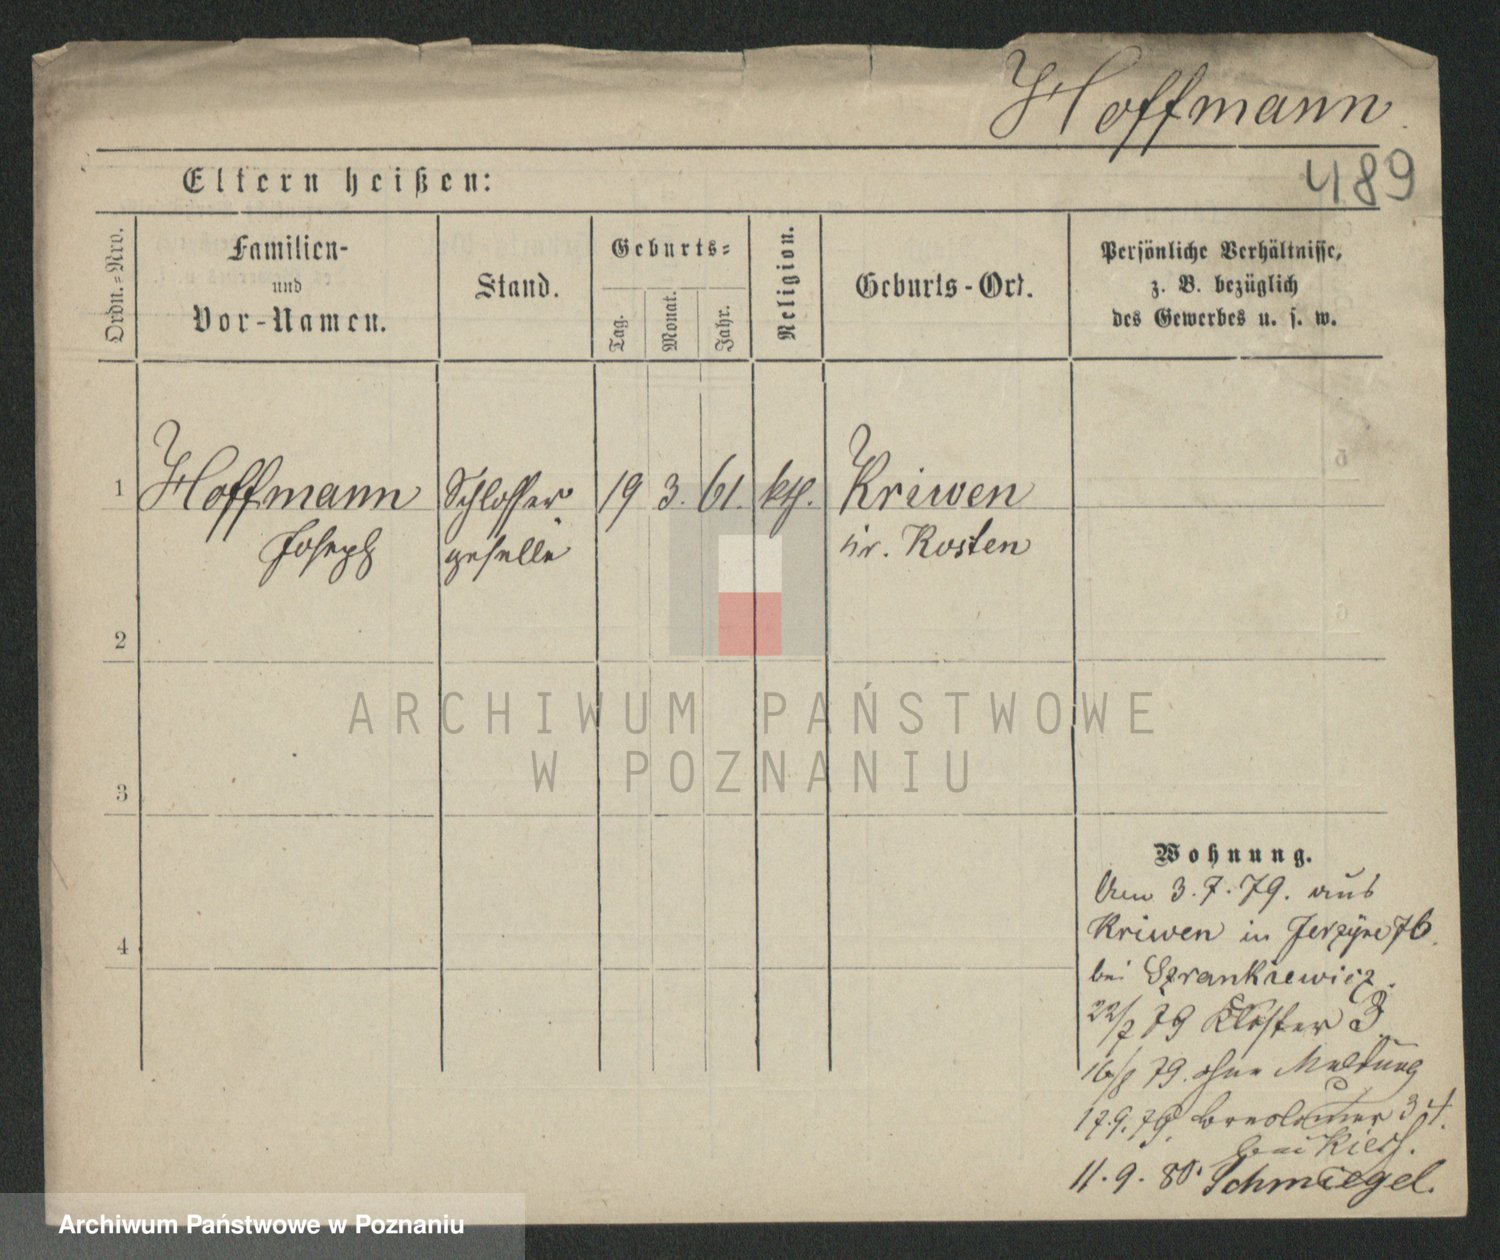 Hoffmann
489
Eltern heißen:
Ordn.=Nro.
Familien-
und
Vor-Namen.
Stand.
Geburts=
Tag.
Monat.
Jahr.
Religion.
Geburts-Ort.
Persönliche Verhältnisse,
z. B. bezüglich
des Gewerbes u. s. w.
1 Hoffmann Schlosser 19 3. 61. kth. Kriwen
Joseph geselle Kr. Kosten
2
3
4
Wohnung.
Am 3.7.79. aus
Kriwen in Jerzyce 76.
bei
22/7 79 Kloster 3
16/8 79. ohne Meldung
17.9.79. Breslauer 34.
bei
11.9.80. Schmiegel.
ARCHIWUM PAŃSTWOWE
W POZNANIU
Archiwum Państwowe w Poznaniu